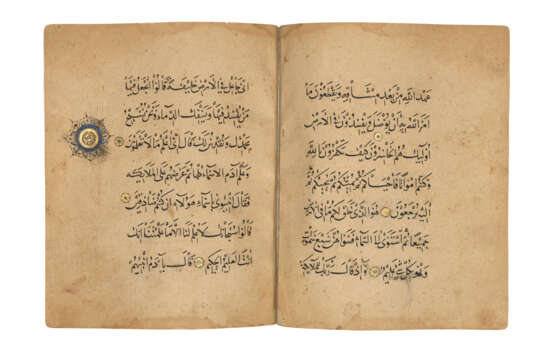 عهد الله من بعد ميثاقه ويقطعون ما
امر الله به ان يوصل ويفسدون في الارض
اولئك هم الخاسرون كيف تكفرون بالله
وكنتم امواتا فاحياكم ثم يميتكم ثم يحييكم ثم
اليه ترجعون هو الذي خلق لكم ما في الارض
جميعا ثم استوى الى السماء فسواهن سبع سموات
وهو بكل شيء عليم واذ قال ربك للملائكة
اني جاعل في الارض خليفة قالوا اتجعل فيها
من يفسد فيها ويسفك الدماء ونحن نسبح
بحمدك ونقدس لك قال اني اعلم ما لا تعلمون
وعلم ادم الاسماء كلها ثم عرضهم على الملائكة
فقال انبئوني باسماء هؤلاء ان كنتم صادقين
قالوا سبحانك لا علم لنا الا ما علمتنا انك
انت العليم الحكيم قال يا ادم انبئهم